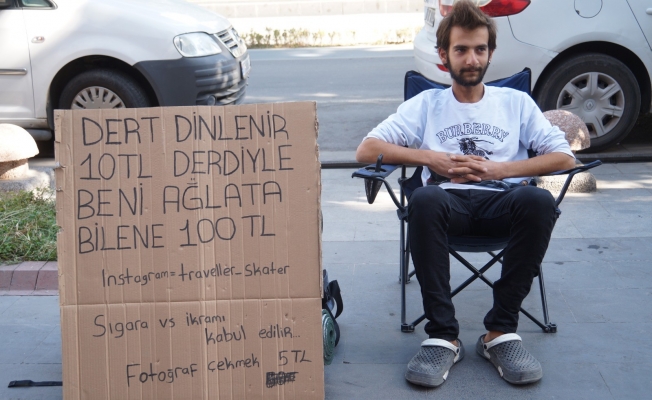 DERT DİNLENİR
10TL DERDİYLE
BENİ AĞLATA
BİLENE 100TL
Instagram=traveller_skater
Sigara vs ikramı
kabul edilir...
Fotoğraf çekmek 5TL
BURBERRY